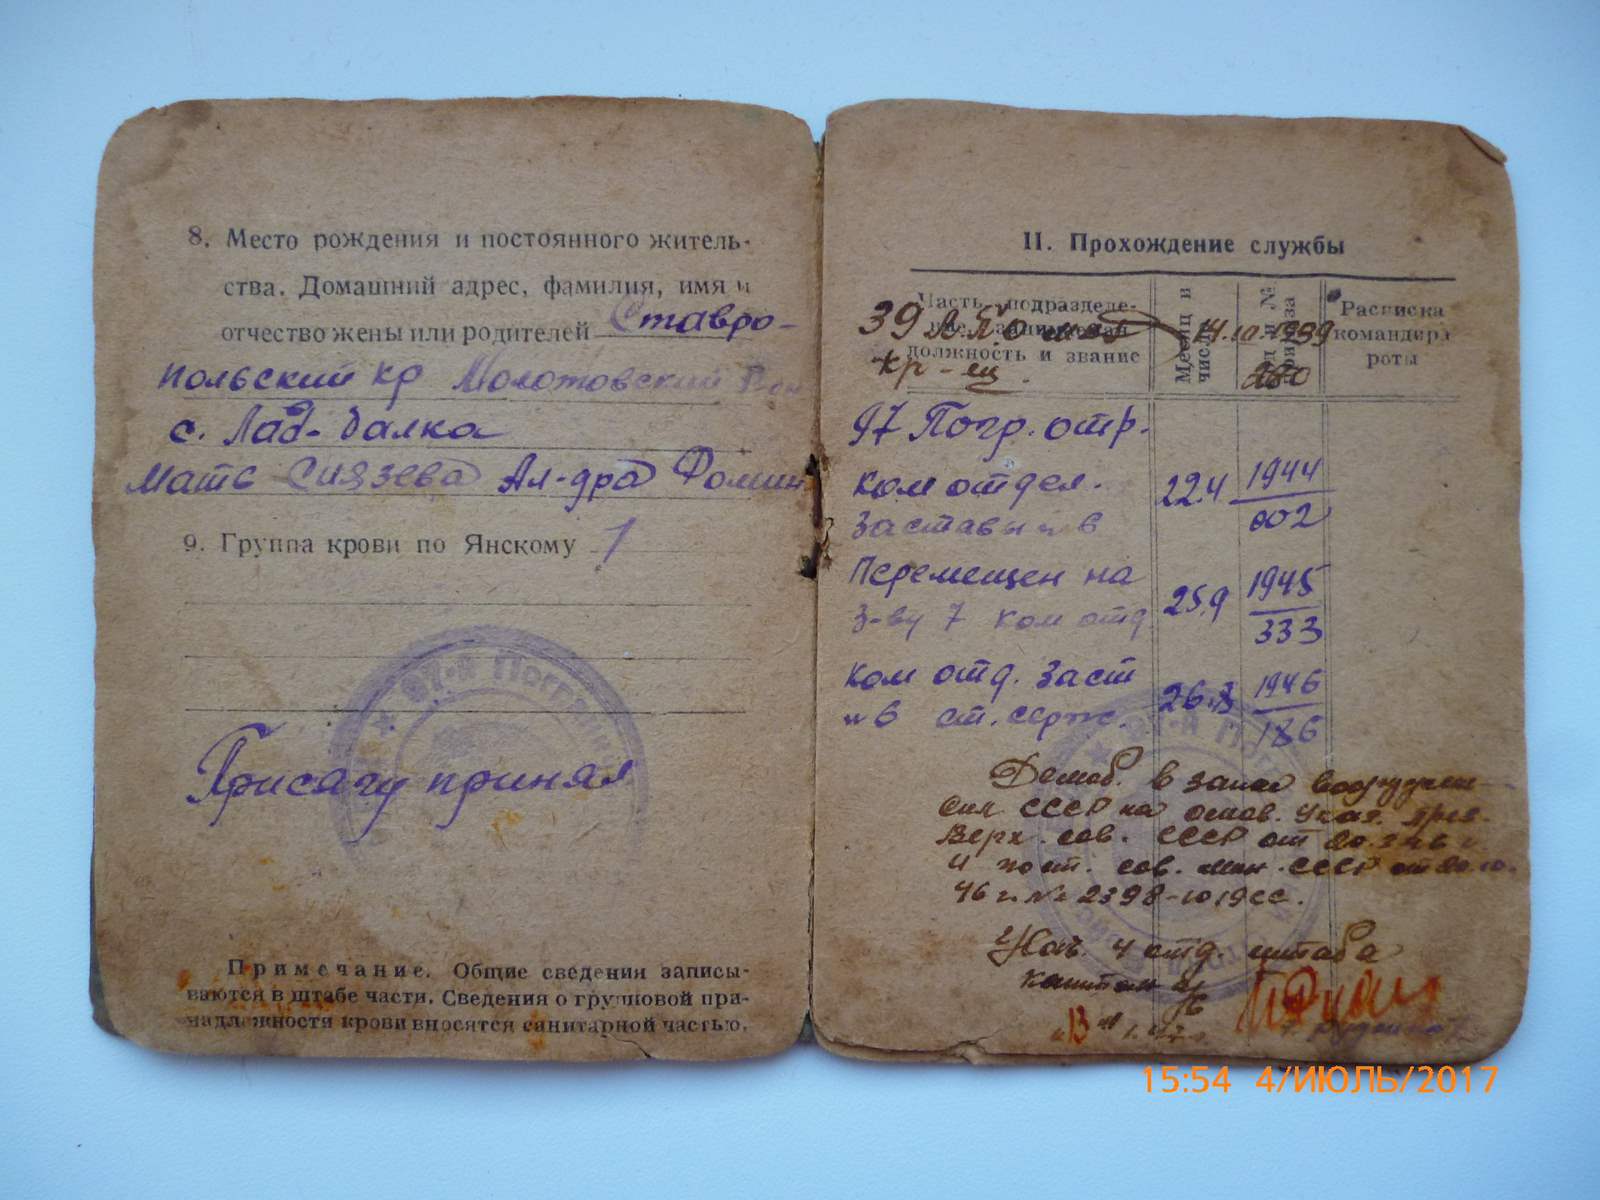 8. Место рождения и постоянного житель-
ства. Домашний адрес, фамилия, имя и
отчество жены или родителей Ставро-
польский кр Молотовский
с. Лад-балка
Мать Сиязева Ал-дра Фомин
9. Группа крови по Янскому 1
97-й Погранич
Присягу принял
Примечание. Общие сведения записы-
ваются в штабе части. Сведения о групповой при-
надлежности крови вносятся санитарной частью.
II. Прохождение службы
Часть, подразделе-
должность и звание
Месяц и
число
Расписка
командира
роты
39 14.10.1939
кр-ец
97 Погр. отр.
Ком отдел. 22.4 1944
Заставы №6 002
Перемещен на 25.9 1945
з-ву 7 ком отд 333
Ком отд. заст 26.8 1946
№6 ст. серж. 186
97-й По
Демоб. в запас вооружен
сил СССР на основ. Указ. През.
Верх. сов. СССР от 20.3.46 г.
и пост. сов. мин. СССР от 20.10.
46 г. № 2398-1019сс.
Нач. 4 отд. штаба
капитан
15:54 4/ИЮЛЬ/2017